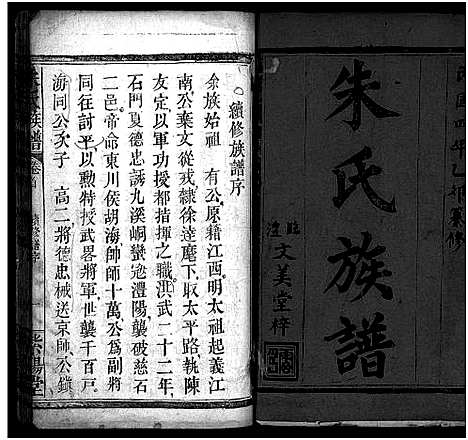 民國四年乙卯纂修
朱氏族譜
註澧文美堂梓
續修族譜序
余族始祖 有公原籍江西明太祖起義江
南公棄文從戎隸徐逵麾下取太平路執陳
友定以軍功授都指揮之職洪武二十二年
石門夏德忠誘九溪峒蠻寇澧陽襲破慈石
二邑帝命東川侯胡海帥師十萬公為副將
同往討平以勲特授武畧將軍世襲千百戸
海同公次子 高二將德忠械送京師公鎮
朱氏族譜 卷首 續修譜序 一 紫陽堂